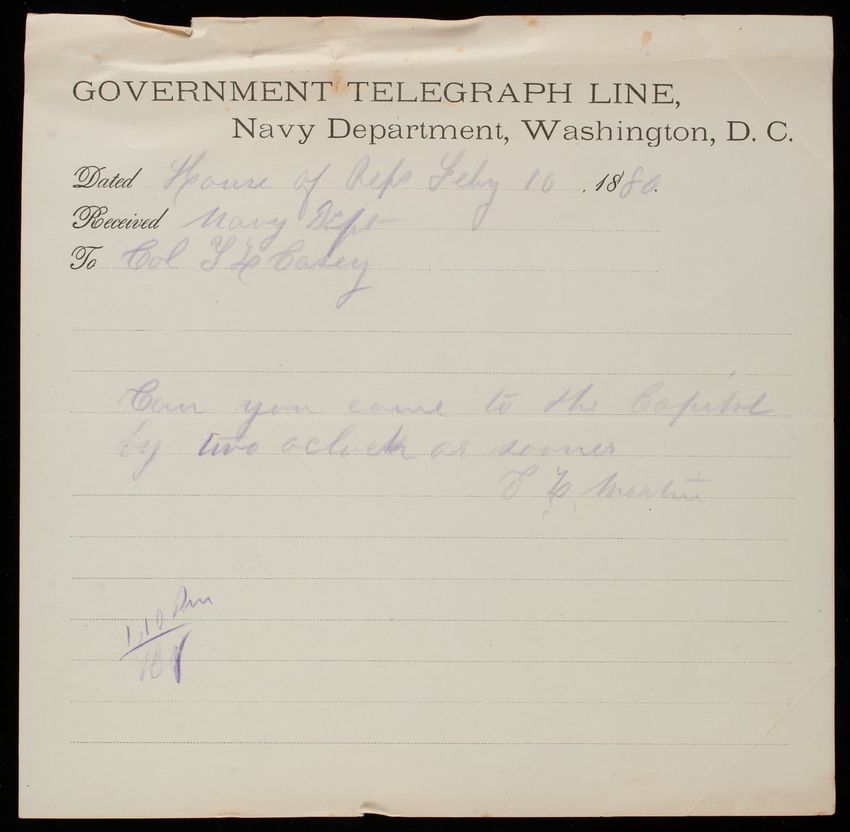 GOVERNMENT TELEGRAPH LINE,
Navy Department, Washington, D. C.
Dated House of Reps Feby 16, 1880.
Received Navy Dept
To Col T L Casey
Can you come to the Capitol
by two oclock or sooner
Martin
1,10 Pm